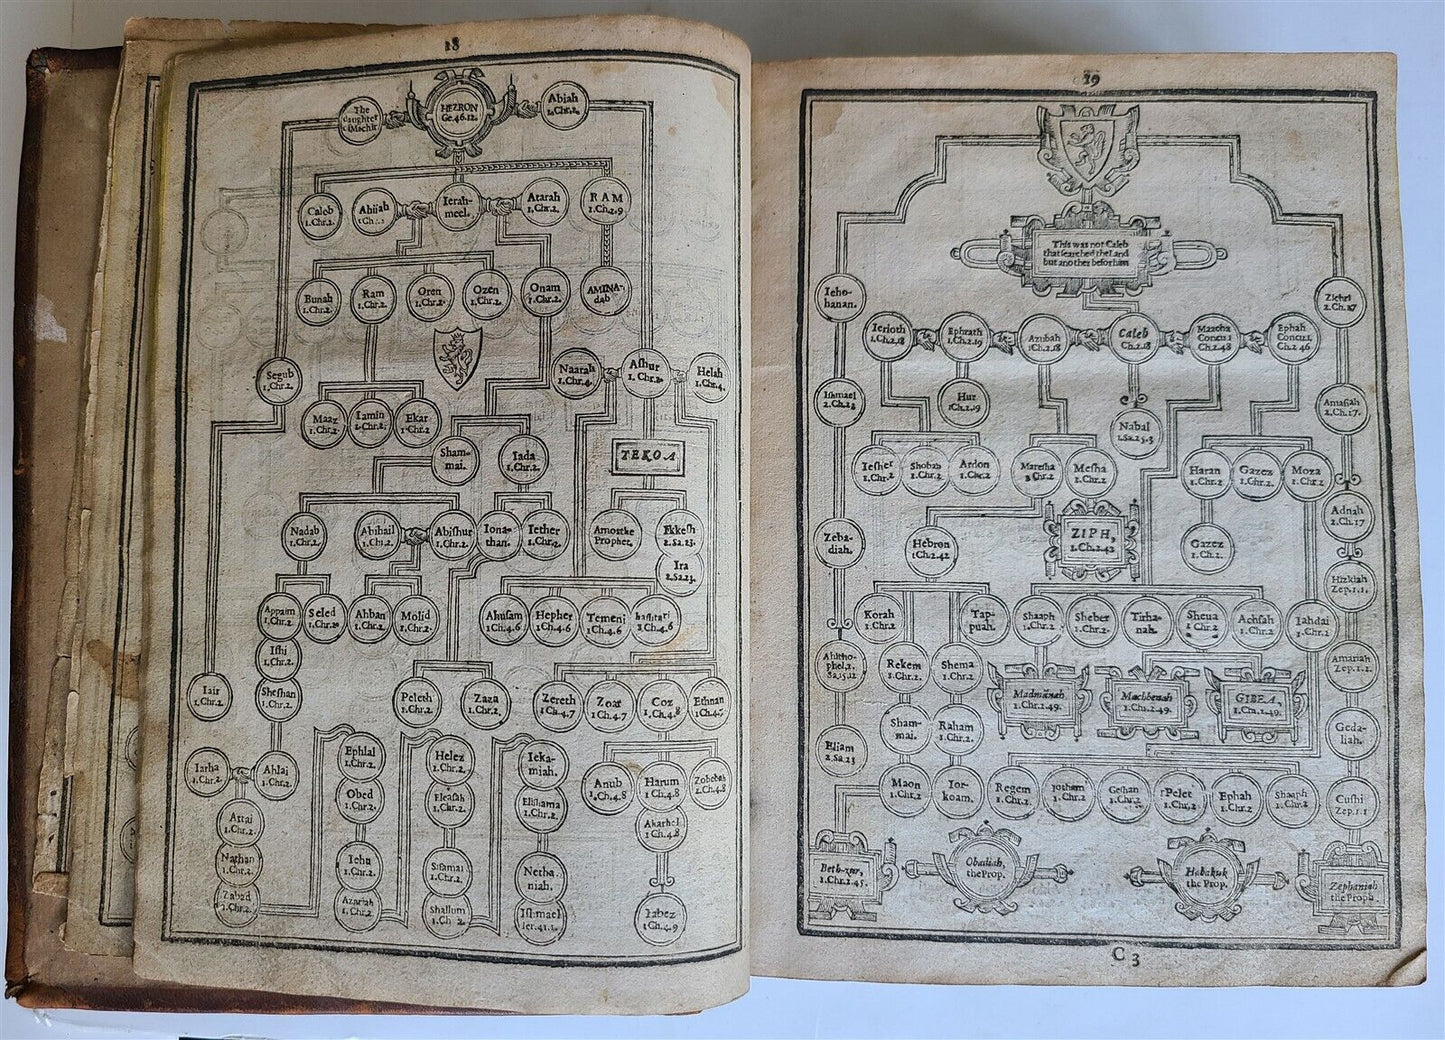 18
The
daughter
HEZRON
Ge.46.12.
Abiah
1.Chr.2.
Caleb
1.Chr.2.
Ahiiah
Ierah-
meel.
Atarah
1.Chr.2.
RAM
1.Ch.2.9
Bunah
1.Chr.2.
Ram
1.Chr.2.
Oren
1.Chr.2.
Ozen
1.Chr.2.
Onam
1.Chr.2.
AMINA-
dab
Segub
1.Chr.2.
Naarah
1.Chr.4.
Ashur
1.Chr.2.
Helah
1.Chr.4.
Maaz
1.Chr.2.
Iamin
1.Chr.2.
Ekar
1.Chr.2
Sham-
mai.
Iada
1.Chr.2.
TEKOA
Nadab
1.Chr.2.
Abihail
1.Ch.2.
Abishur
1.Chr.2.
Iona-
than.
Iether
1.Chr.2.
Amos the
Prophet.
Ekkesh
2.Sa.23.
Ira
2.Sa.23.
Appaim
1.Chr.2.
Seled
1.Chr.2.
Ahban
1.Chr.2.
Molid
1.Chr.2.
Ahusam
1Ch.4.6
Hepher
1Ch.4.6
Temeni
1Ch.4.6
1Ch.4.6
Ishi
1.Chr.2.
Iair
1.Chr.2.
Sheshan
1.Chr.2.
Peleth
1.Chr.2.
Zaza
1.Chr.2.
Zereth
1Ch.4.7
Zoar
1Ch.4.7
Coz
1.Ch.4.8
Ethnan
1.Ch.4.7
Iarha
1.Chr.2.
Ahlai
1.Chr.2.
Ephlal
1.Chr.2.
Helez
1.Chr.2.
Ieka-
miah.
Anub
1.Ch.4.8
Harum
1Ch.4.8
Zobebah
1.Ch.4.8
Attai
1.Chr.2.
Obed
1.Chr.2.
Eleasah
1.Chr.2.
Elishama
1.Chr.2.
Akarhel
1Ch.4.8
Nathan
1.Chr.2.
Iehu
1.Chr.2.
Sisamai
1.Chr.2.
Netha
niah.
Zabad
1.Chr.2.
Azariah
1.Chr.2.
Shallum
1.Ch 2.
Ishmael
Ier.41.1.
Iabez
1Ch.4.9
19
This was not Caleb
that searched the Land
but another before him
Ieho-
hanan.
Zichri
2.Ch.17
Ierioth
1.Ch.2.18
Ephrath
1.Ch.2.19
Azubah
1Ch.2.18
Caleb
Ch.2.18
Maacha
Concu:1
Ch.2.48
Ephah
Concu:1,
Ch.2 46
Ishmael
2.Ch.23
Hur
1Ch.2.19
Nabal
1.Sa.25.3
Amasiah
2.Ch.17.
Iesher
1.Chr.2
Shobab
1.Chr.2
Ardon
1.Chr.2
Maresha
1.Chr.2
Mesha
1.Chr.2
Haran
1.Chr.2
Gazez
1.Chr.2.
Moza
1.Chr.2
Adnah
2.Ch.17
Zeba-
diah.
Hebron
1Ch.2.42
ZIPH,
1.Ch.2.42
Gazez
1.Ch.2.
Hizkiah
Zep.1.1.
Korah
1.Chr.2
Tap-
puah.
Shaaph
1.Chr.2
Sheber
1.Chr.2.
Tirha-
nah.
Sheua
1.Chr.2.
Achsah
1.Chr.2
Iahdai
1.Chr.2
Ahitho-
phel,2.
Sa.15.12
Rekem
1.Chr.2
Shema
1.Chr.2
Madmanah
1.Ch.2.49.
Machbenah
1.Ch.2.49.
GIBEA,
1.Ch.2.49.
Amariah
Zep.1.1.
Eliam
2.Sa.23
Sham-
mai.
Raham
1.Chr.2.
Geda-
liah.
Maon
1.Chr.2
Ior-
koam.
Regem
1.Chr.2.
Iotham
1.Chr.2.
Geshan
1.Chr.2.
Pelet
1.Chr.2.
Ephah
1.Chr.2
Shaaph
1.Chr.2
Cushi
Zep.1.1
Beth-zur,
1.Chr.2.45.
Obadiah,
the Prop.
Habakuk
the Prop.
Zephaniah
the Proph.
C 3